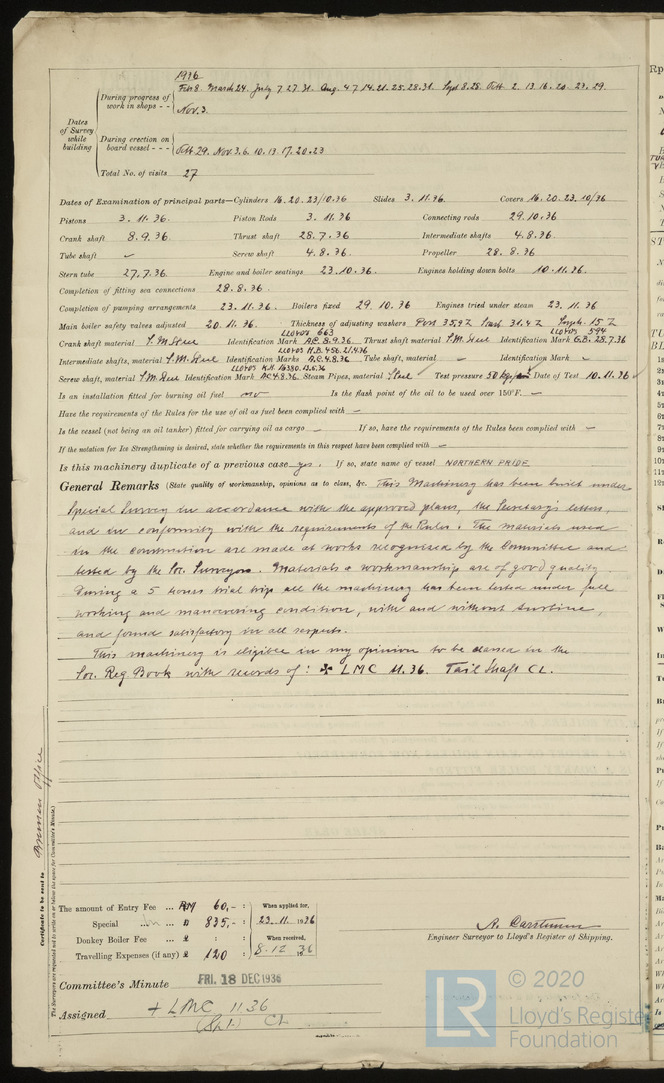 1936
Dates of Survey while building
During progress of work in shops - - Feb 8. March 24. July 7. 27. 31. Aug. 4. 7. 14. 21. 25. 28. 31. Sept 8. 28. Oct. 2. 13. 16. 20. 23. 29.
Nov. 3.
During erection on board vessel - - - Oct. 29. Nov. 3. 6. 10. 13. 17. 20. 23
Total No. of visits 27
Dates of Examination of principal parts—Cylinders 16. 20. 23/10.36 Slides 3. 11. 36. Covers 16. 20. 23. 10/36
Pistons 3. 11. 36. Piston Rods 3. 11. 36 Connecting rods 29. 10. 36
Crank shaft 8. 9. 36. Thrust shaft 28. 7. 36 Intermediate shafts 4. 8. 36.
Tube shaft Screw shaft 4. 8. 36. Propeller 28. 8. 36
Stern tube 27. 7. 36. Engine and boiler seatings 23. 10. 36. Engines holding down bolts 10. 11. 36.
Completion of fitting sea connections 28. 8. 36.
Completion of pumping arrangements 23. 11. 36. Boilers fixed 29. 10. 36 Engines tried under steam 23. 11. 36
Main boiler safety valves adjusted 20. 11. 36. Thickness of adjusting washers Port
LLOYDS 663 LLOYDS 594
Crank shaft material S.M. Steel Identification Mark A.C. 8.9.36. Thrust shaft material S.M. Steel Identification Mark G.B. 28.7.36
LLOYDS H.B. 456. 21.4.36
Intermediate shafts, material S.M. Steel Identification Marks A.C. 4.8.36 Tube shaft, material Identification Mark
LLOYDS K.H. 16380. 12.6.36
Screw shaft, material S.M. Steel Identification Mark A.C. 4.8.36. Steam Pipes, material Steel Test pressure 50 Date of Test 10. 11. 36
Is an installation fitted for burning oil fuel no Is the flash point of the oil to be used over 150°F. —
Have the requirements of the Rules for the use of oil as fuel been complied with —
Is the vessel (not being an oil tanker) fitted for carrying oil as cargo — If so, have the requirements of the Rules been complied with —
If the notation for Ice Strengthening is desired, state whether the requirements in this respect have been complied with —
Is this machinery duplicate of a previous case yes. If so, state name of vessel NORTHERN PRIDE
General Remarks (State quality of workmanship, opinions as to class, &c. This Machinery has been built under
Special Survey in accordance with the approved plans, the Secretary's letters,
and in conformity with the requirements of the Rules. The materials used
in the construction are made at works recognised by the Committee and
tested by the Soc. Surveyors. Materials & workmanship are of good quality
During a 5 hours trial trip all the machinery has been tested under full
working and manoeuvring condition, with and without turbine,
and found satisfactory in all respects.
This machinery is eligible in my opinion to be classed in the
Soc. Reg. Book with records of: ✠ LMC 11.36. Tail Shaft CL.
Certificate to be sent to Bremen Office
(The Surveyors are requested not to write on or below the space for Committee's Minute.)
The amount of Entry Fee ... RM 60,- : When applied for,
Special ... 835,- : 23. 11. 1936
Donkey Boiler Fee ... £ : : When received,
Travelling Expenses (if any) £ 120 : 8. 12. 36
Engineer Surveyor to Lloyd's Register of Shipping.
Committee's Minute FRI. 18 DEC 1936
Assigned + LMC 11 36
CL
LR © 2020
Lloyd's Register
Foundation